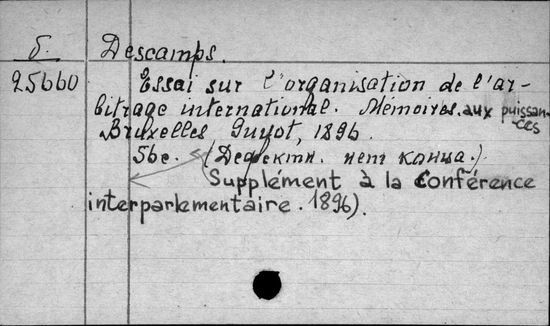 б. Descamps.
25660 Essai sur l'organisation de l'ar-
bitrage international. Mémoires. aux puissan-
ces
Bruxelles Guyot, 1896.
56c. (Дефектн. нет конца.)
(Supplément à la Conférence
interparlementaire. 1896).